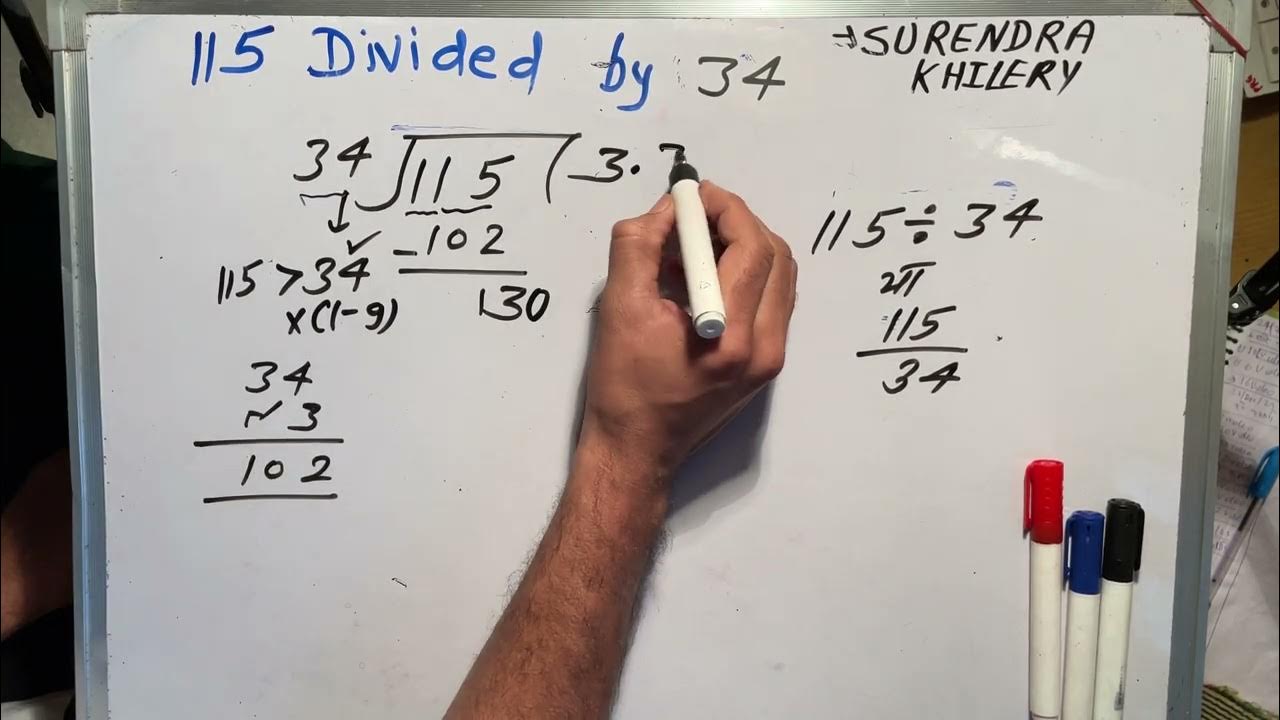 115 Divided by 34
→SURENDRA
KHILERY
34 115 3.
- 102
130
115 > 34
x(1-9)
34
3
102
115 ÷ 34
115
34